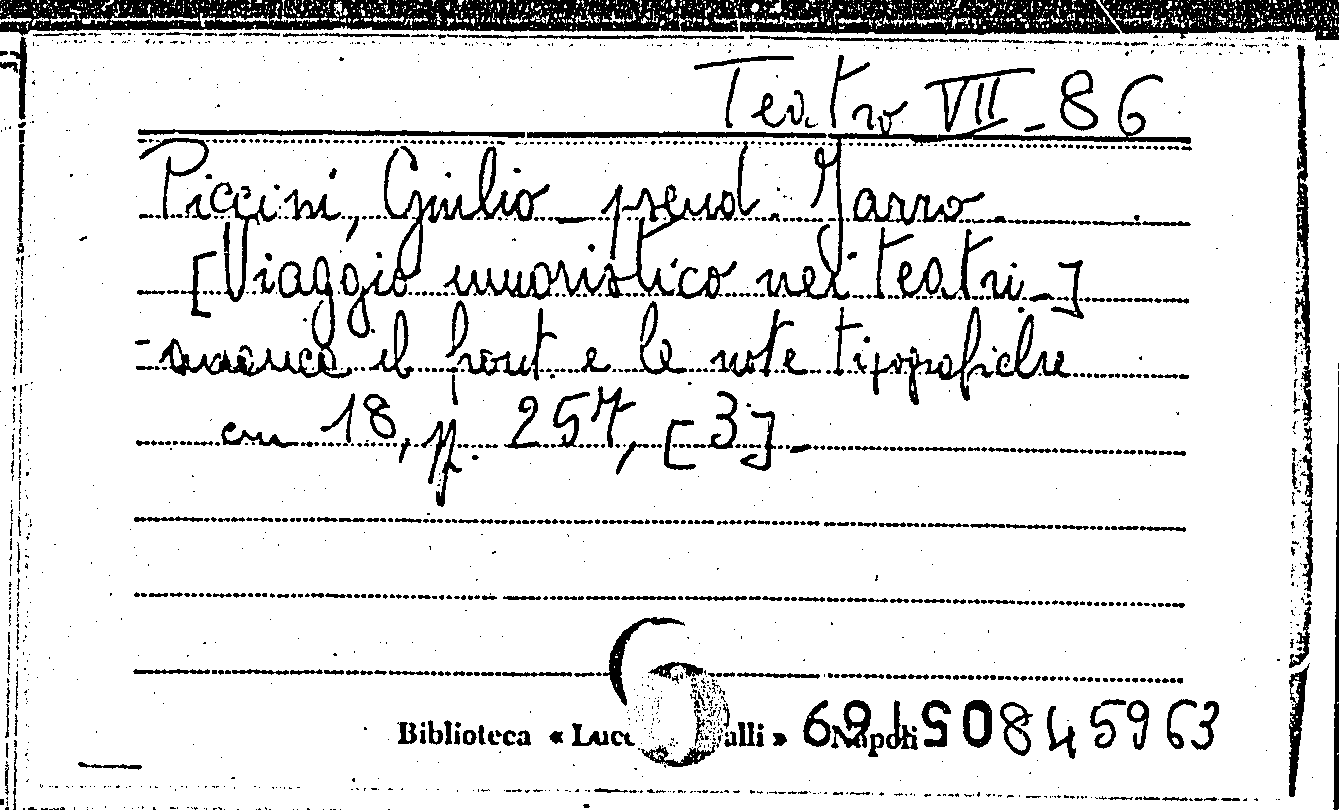 Teatro VII-86
Piccini, Giulio - pseud. Jarro.
[Viaggio umoristico nei teatri -]
- manca il front. e le note tipografiche
in 18, p. 257, [3] -
Biblioteca « Lucc alli » Napoli